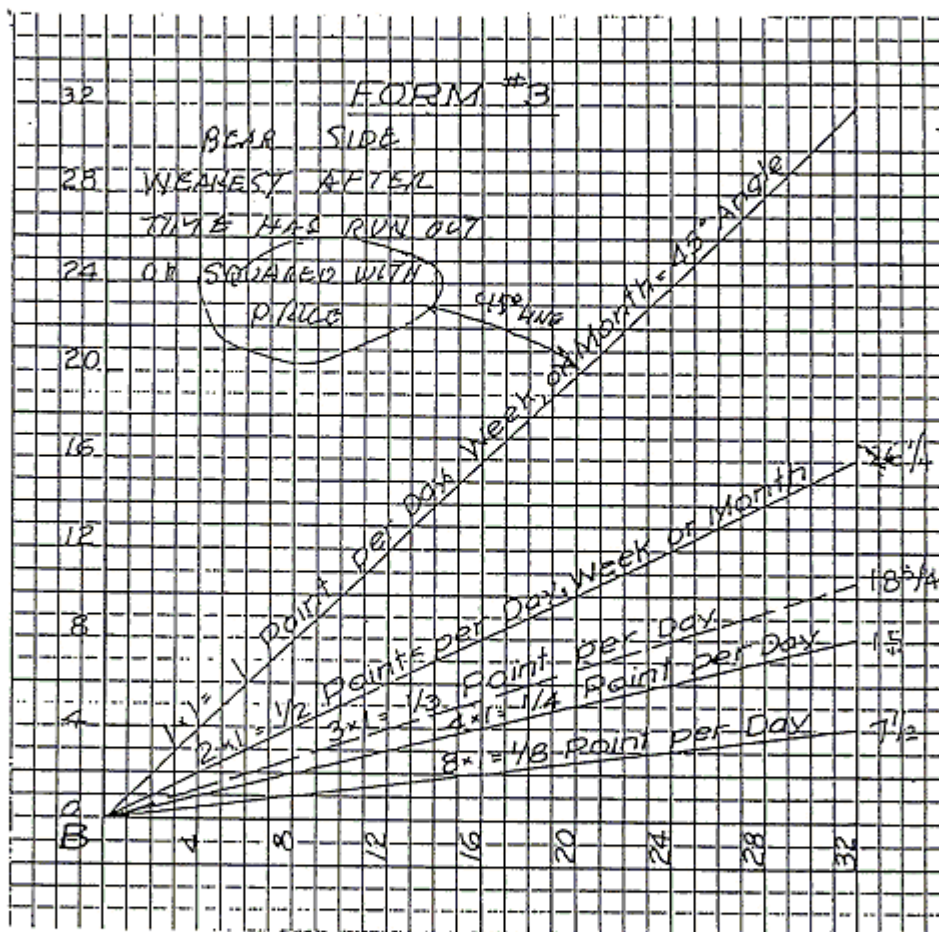 FORM #3
BEAR SIDE
WEAKEST AFTER
TIME HAS RUN OUT
OR SQUARED WITH
PRICE
45° LINE
1×1 = 1 Point per Day, Week, or Month = 45° Angle
2×1 = 1/2 Points per Day, Week or Month
3×1 = 1/3 Point per Day
4×1 = 1/4 Point per Day
8×1 = 1/8 Point per Day
1/4
18 3/4
15
7 1/2
32
28
24
20
16
12
8
4
0
B
4 8 12 16 20 24 28 32